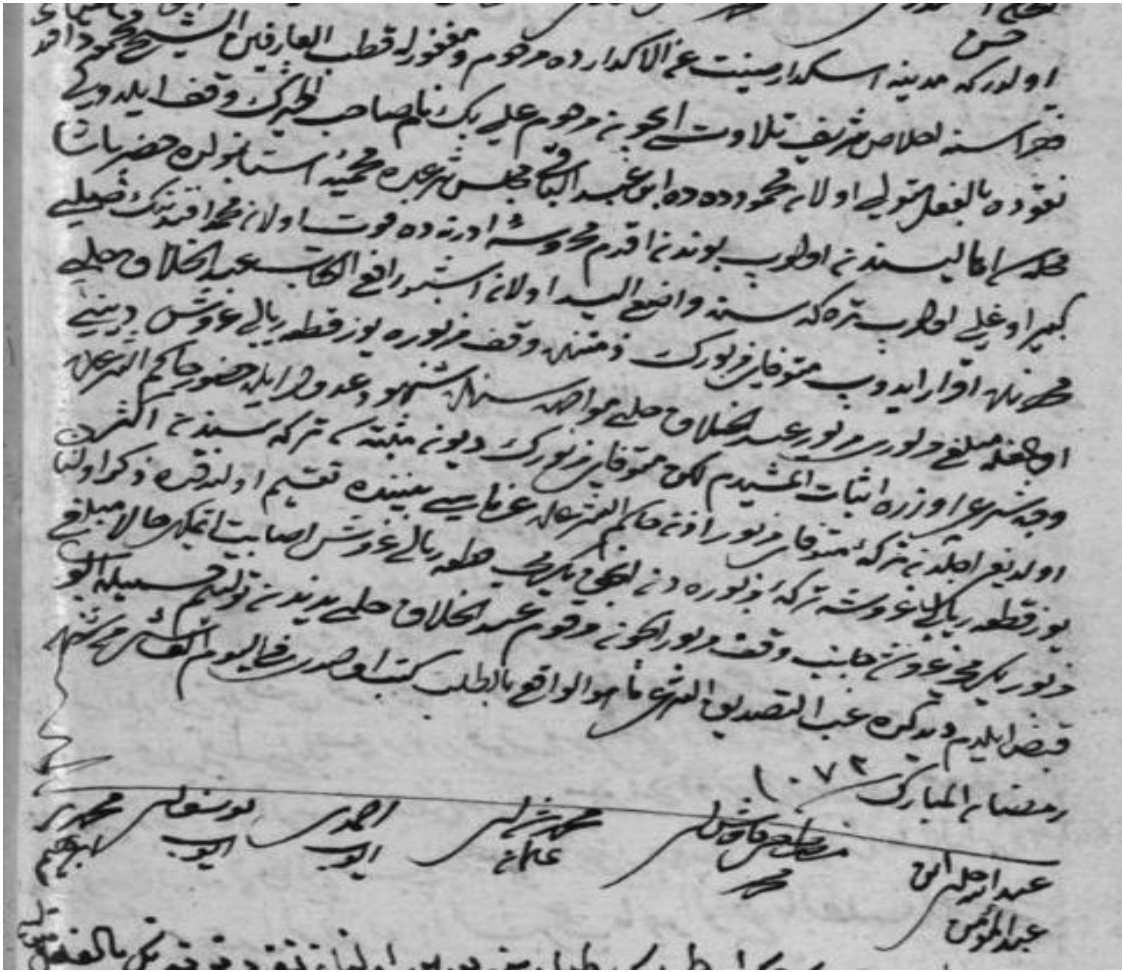 اولدركه مدينه اسكدار صينت عن الاكدارده مرحوم ومغفور له قطب العارفين الشيخ محمود افندى
اخلاص شريف تلاوت ايچون مرحوم على بك نام صاحب الخيرك وقف ايلديكى
نقوده بالفعل متولى اولان محمود دده ابن عبد الباقى مجلس شرعده محميه استانبولده خضر پاشا
محله سى اهاليسندن اولوب بوندن اقدم محروسه ادرنه ده فوت اولان محمد افندينك صلبى
كبير اوغلى اولوب تركه سنه واضع اليد اولان اشبو رافع الكتاب عبد الخلاق چلبى
محضرنده اقرار ايدوب متوفاى مزبورك ذمتنده وقف مزبوره يوز قطعه ريالى غروش دينى
اولمغله مبلغ مزبورى مزبور عبد الخلاق چلبى مواجهه سنده شهود عدول ايله حضور حاكم الشرعده
وجه شرعى اوزره اثبات ايتمشيدم لكن متوفاى مزبورك ديون مثبته سى تركه سندن اكثر
اولديغى اجلدن تركه متوفاى مزبور اذن حاكم الشرعله غرماسى بيننده تقسيم اولندقده ذكر اولنان
يوز قطعه ريالى غروشه تركه مزبوره دن انجق يكرمى قطعه ريالى غروش اصابت ايتمكله حالا مبلغ
مزبور يكرمى غروشى جانب وقف مزبور ايچون مرقوم عبد الخلاق چلبى يدندن
قبض ايلدم ديدكده غب التصديق الشرعى ما هو الواقع بالطلب كتب اولندى فى اليوم من شهر
رمضان المبارك ١٠٧٢
عبد الرحمن ابن عبد المؤمن
محمد
عثمان
احمد بن ايوب
يوسف بن ايوب
محمد بن ابراهيم